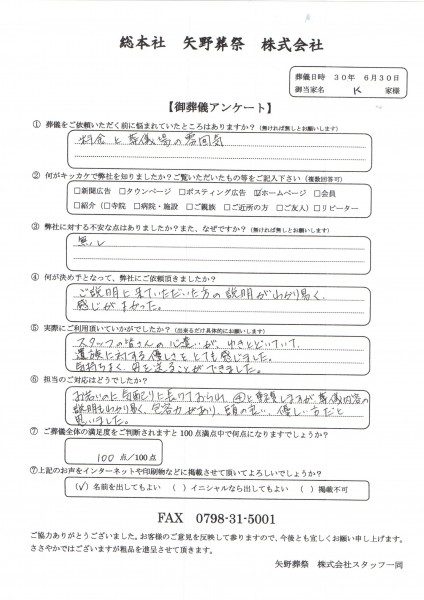 総本社 矢野葬祭 株式会社
葬儀日時 30年 6月30日
御当家名 K 家様
【御葬儀アンケート】
① 葬儀をご依頼いただく前に悩まれていたところはありますか？（無ければ無しとお願いします）
料金と葬儀場の雰囲気
② 何がキッカケで弊社を知りましたか？ご覧いただいたもの等をご記入下さい（複数回答可）
□新聞広告 □タウンページ □ポスティング広告 ☑ホームページ □会員
□紹介（□寺院 □病院・施設 □ご親族 □ご近所の方 □ご友人）□リピーター
③ 弊社に対する不安な点はありましたか？また、なぜですか？（無ければ無しとお願いします）
無し
④ 何が決め手となって、弊社にご依頼頂きましたか？
ご説明に来ていただいた方の説明がわかり易く、
感じがよかった。
⑤ 実際にご利用頂いていかがでしたか？（出来るだけ具体的にお願いします）
スタッフの皆さんの心遣いが、ゆきとどいていて、
遺族に対する優しさをとても感じました。
気持ちよく、母を送ることができました。
⑥ 担当のご対応はどうでしたか？
お若いのに気配りに長けておられ、
説明もわかり易く、包容力があり、頭の良い、優しい方だと
思いました。
⑦ ご葬儀全体の満足度をご判断されますと100点満点中で何点になりますでしょうか？
100 点／100点
⑦上記のお声をインターネットや印刷物などに掲載させて頂いてよろしいでしょうか？
（✓）名前を出してもよい （ ）イニシャルなら出してもよい （ ）掲載不可
FAX 0798-31-5001
ご協力ありがとうございました。お客様のご意見を反映して参りますので、今後とも宜しくお願い申し上げます。
ささやかではございますが粗品を進呈させて頂きます。
矢野葬祭 株式会社スタッフ一同